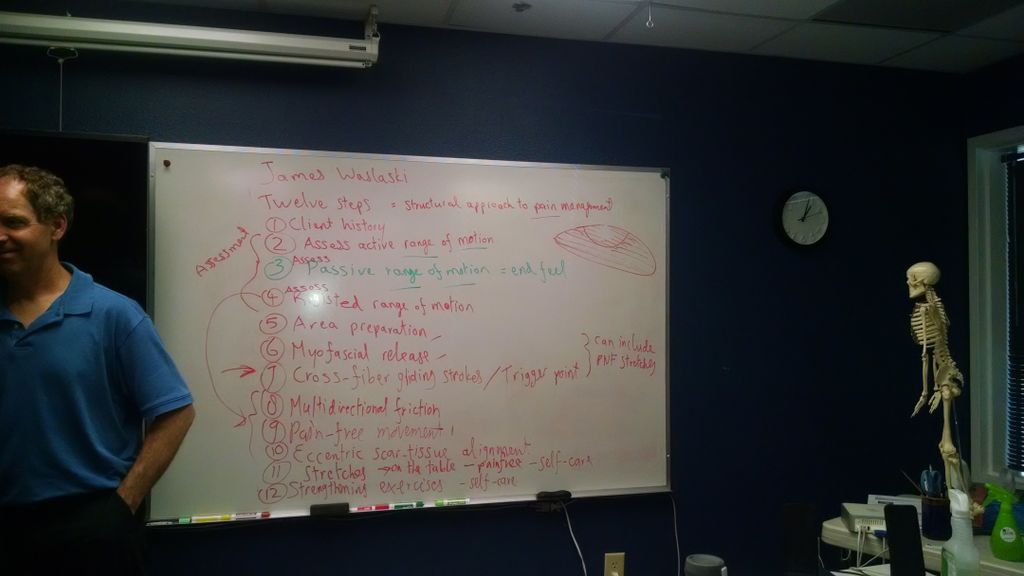 James Waslaski
Twelve steps = structural approach to pain management
① Client history
Assessment
② Assess active range of motion
③ Assess Passive range of motion = end feel
④ Assess Resisted range of motion
⑤ Area preparation
⑥ Myofascial release
⑦ Cross-fiber gliding strokes / Trigger point
} can include
PNF stretches
⑧ Multidirectional friction
⑨ Pain-free movement
⑩ Eccentric scar-tissue alignment
⑪ Stretches → on the table - painfree - self-care
⑫ Strengthening exercises - self-care